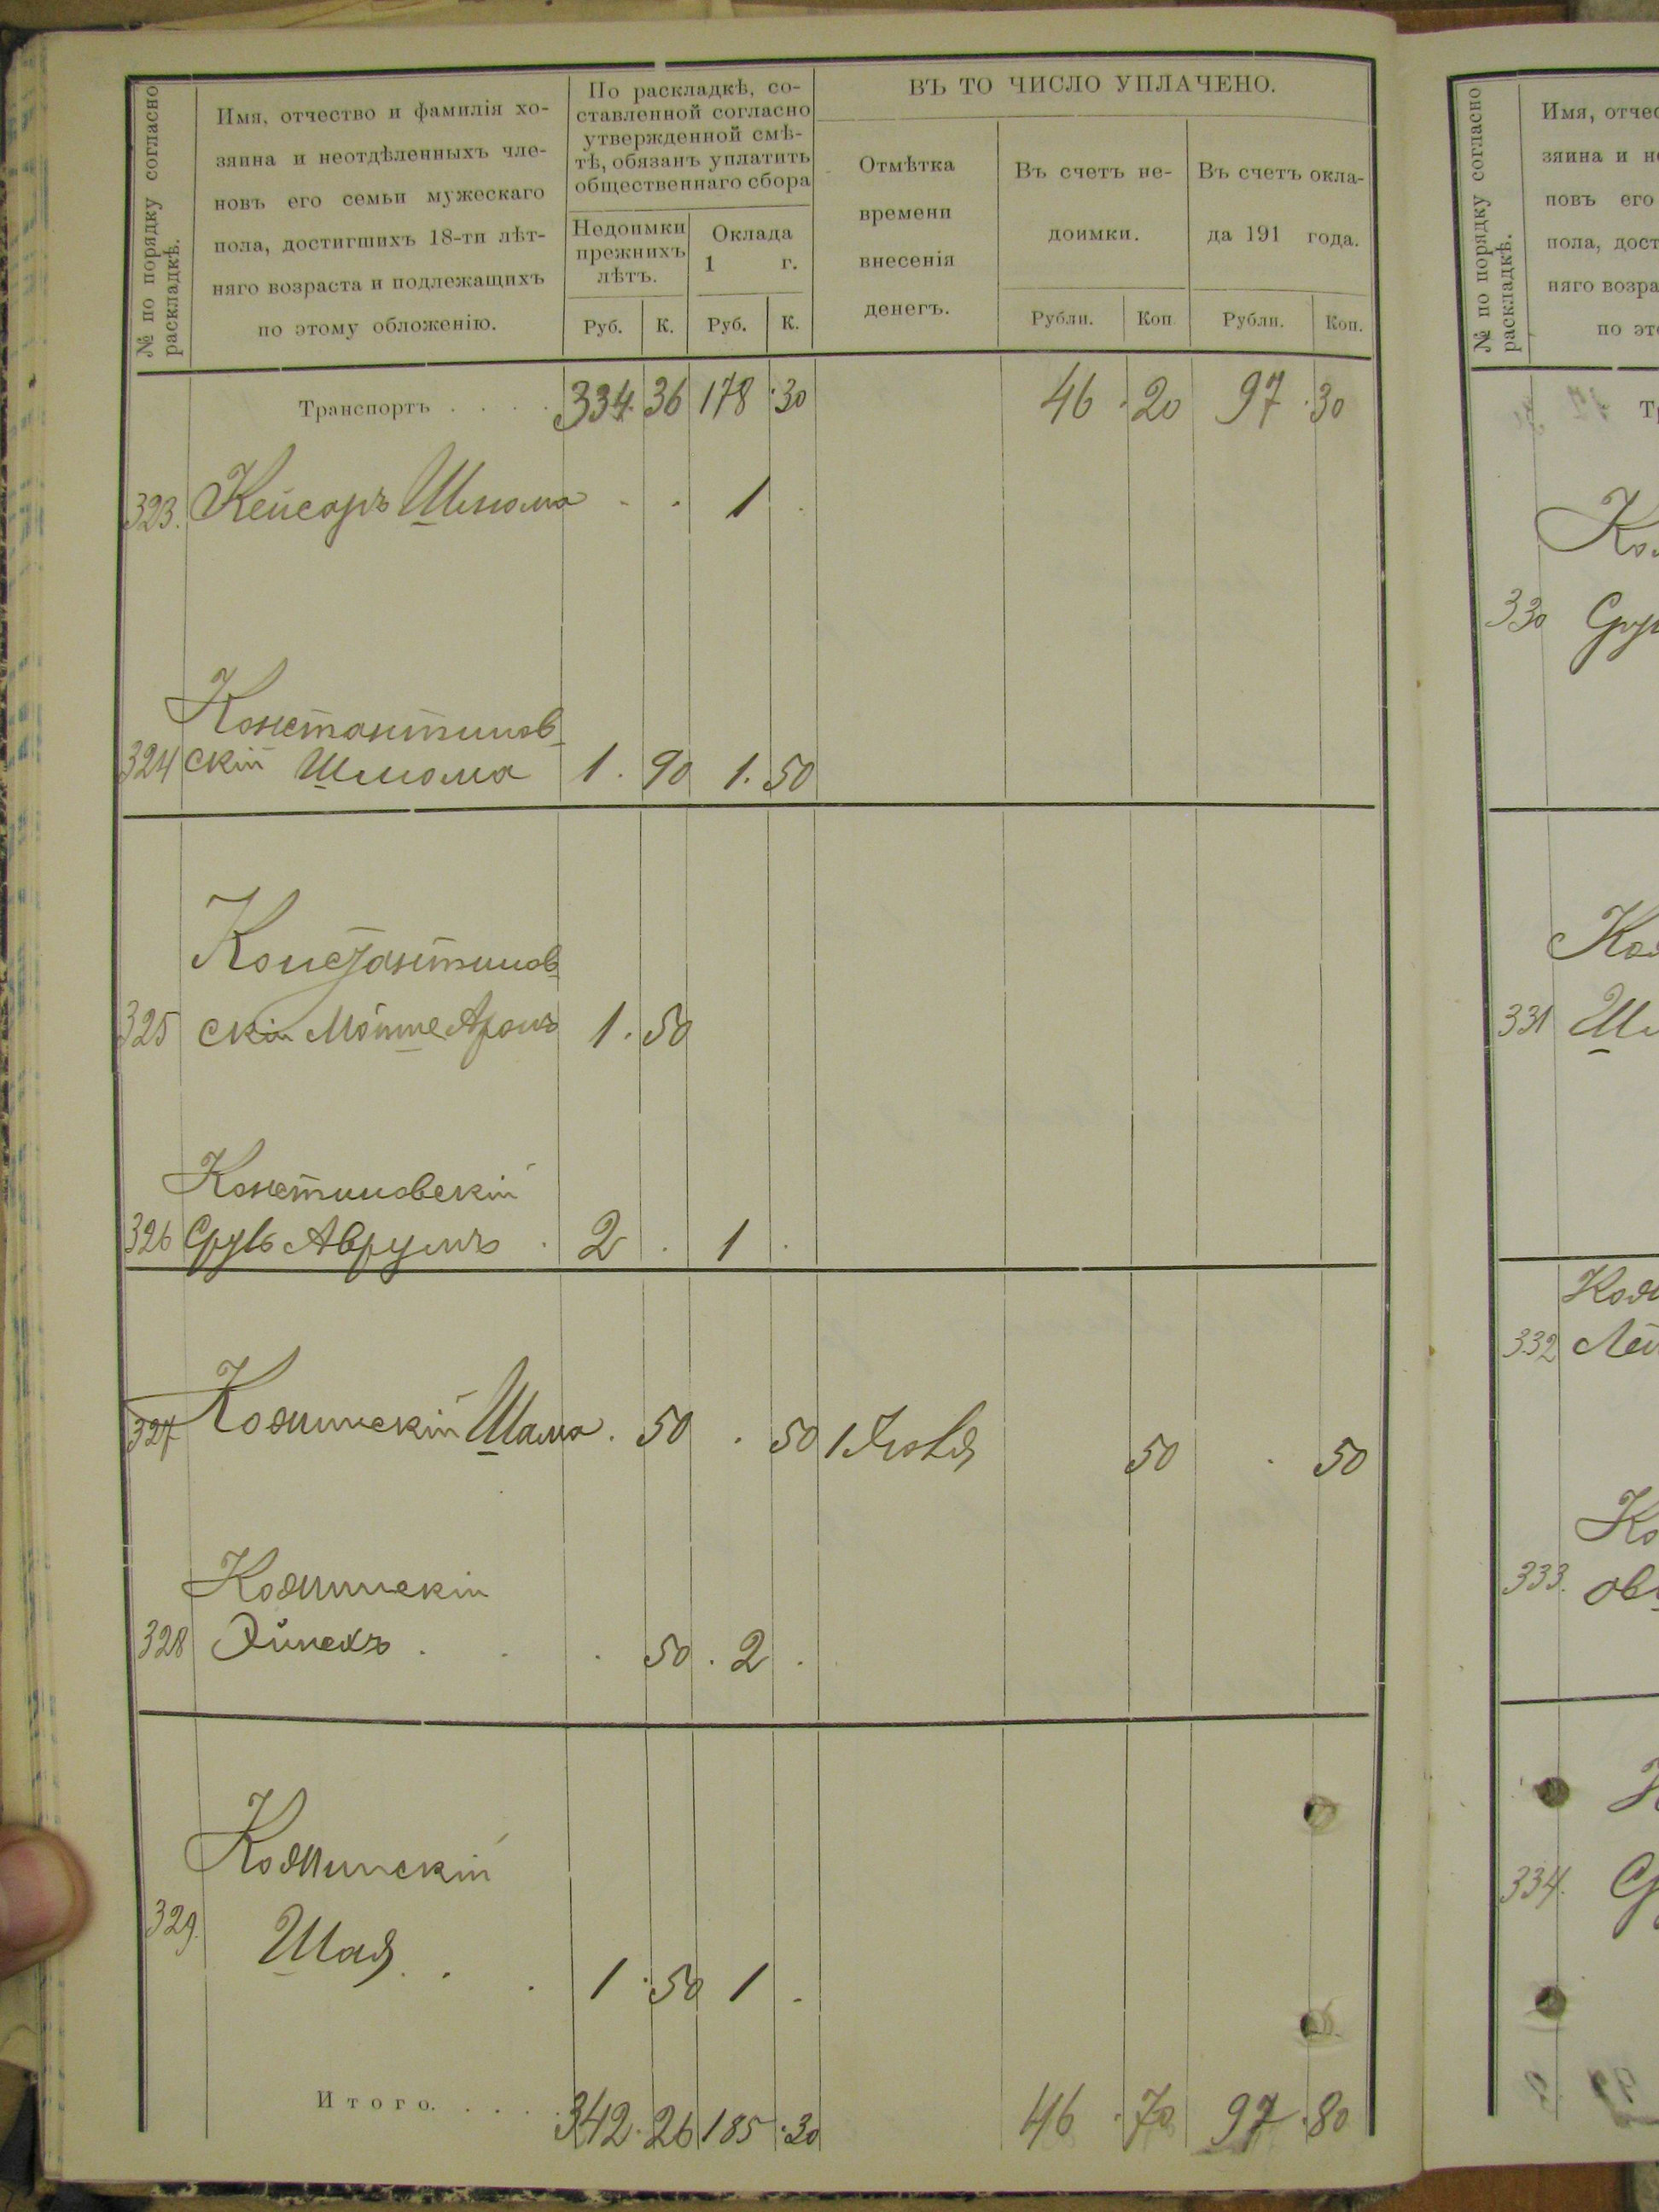 № по порядку согласно
раскладкѣ.
Имя, отчество и фамилія хо-
зяина и неотдѣленныхъ чле-
новъ его семьи мужескаго
пола, достигшихъ 18-ти лѣт-
няго возраста и подлежащихъ
по этому обложенію.
По раскладкѣ, со-
ставленной согласно
утвержденной смѣ-
тѣ, обязанъ уплатить
общественнаго сбора
Недоимки
прежнихъ
лѣтъ.
Оклада
1 г.
Руб. К. Руб. К.
ВЪ ТО ЧИСЛО УПЛАЧЕНО.
Отмѣтка
времени
внесенія
денегъ.
Въ счетъ не-
доимки.
Въ счетъ окла-
да 191 года.
Рубли. Коп Рубли. Коп.
Транспортъ . . . . 334. 36 178 .30 46 .20 97 .30
323. Кейсаръ Шлома . . 1 .
Константинов-
324 скій Шлома 1. 90 1. 50
Константинов-
325 скій Мошше Аронъ 1. 50
Констиновскій
326 Сруль Аврумъ . 2 . 1 .
327 Козминскій Шама . 50 . 50 1 Іюля 50 . 50
Козминскій
328 Эйнехъ . . . 50 . 2 .
Козминскій
329. Шая . . . 1 .50 1 .
Итого. . . . . 342. 26 185 .30 46 .70 97 .80
№ по порядку согласно
раскладкѣ.
Имя, отчес
зяина и н
новъ его
пола, дост
няго возра
по эт
330
331
332
333.
334.